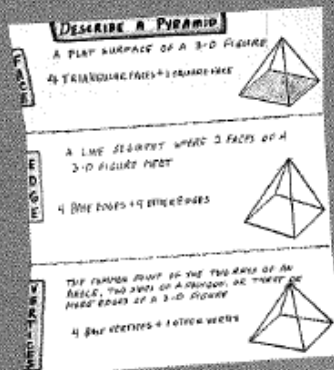 DESCRIBE A PYRAMID
FACE
A FLAT SURFACE OF A 3-D FIGURE
4 TRIANGULAR FACES + 1 SQUARE FACE
EDGE
A LINE SEGMENT WHERE 2 FACES OF A
3-D FIGURE MEET
4 BASE EDGES + 4 OTHER EDGES
VERTICES
THE COMMON POINT OF THE TWO RAYS OF AN
ANGLE, TWO SIDES OF A POLYGON, OR THREE OR
MORE EDGES OF A 3-D FIGURE
4 BASE VERTICES + 1 OTHER VERTEX